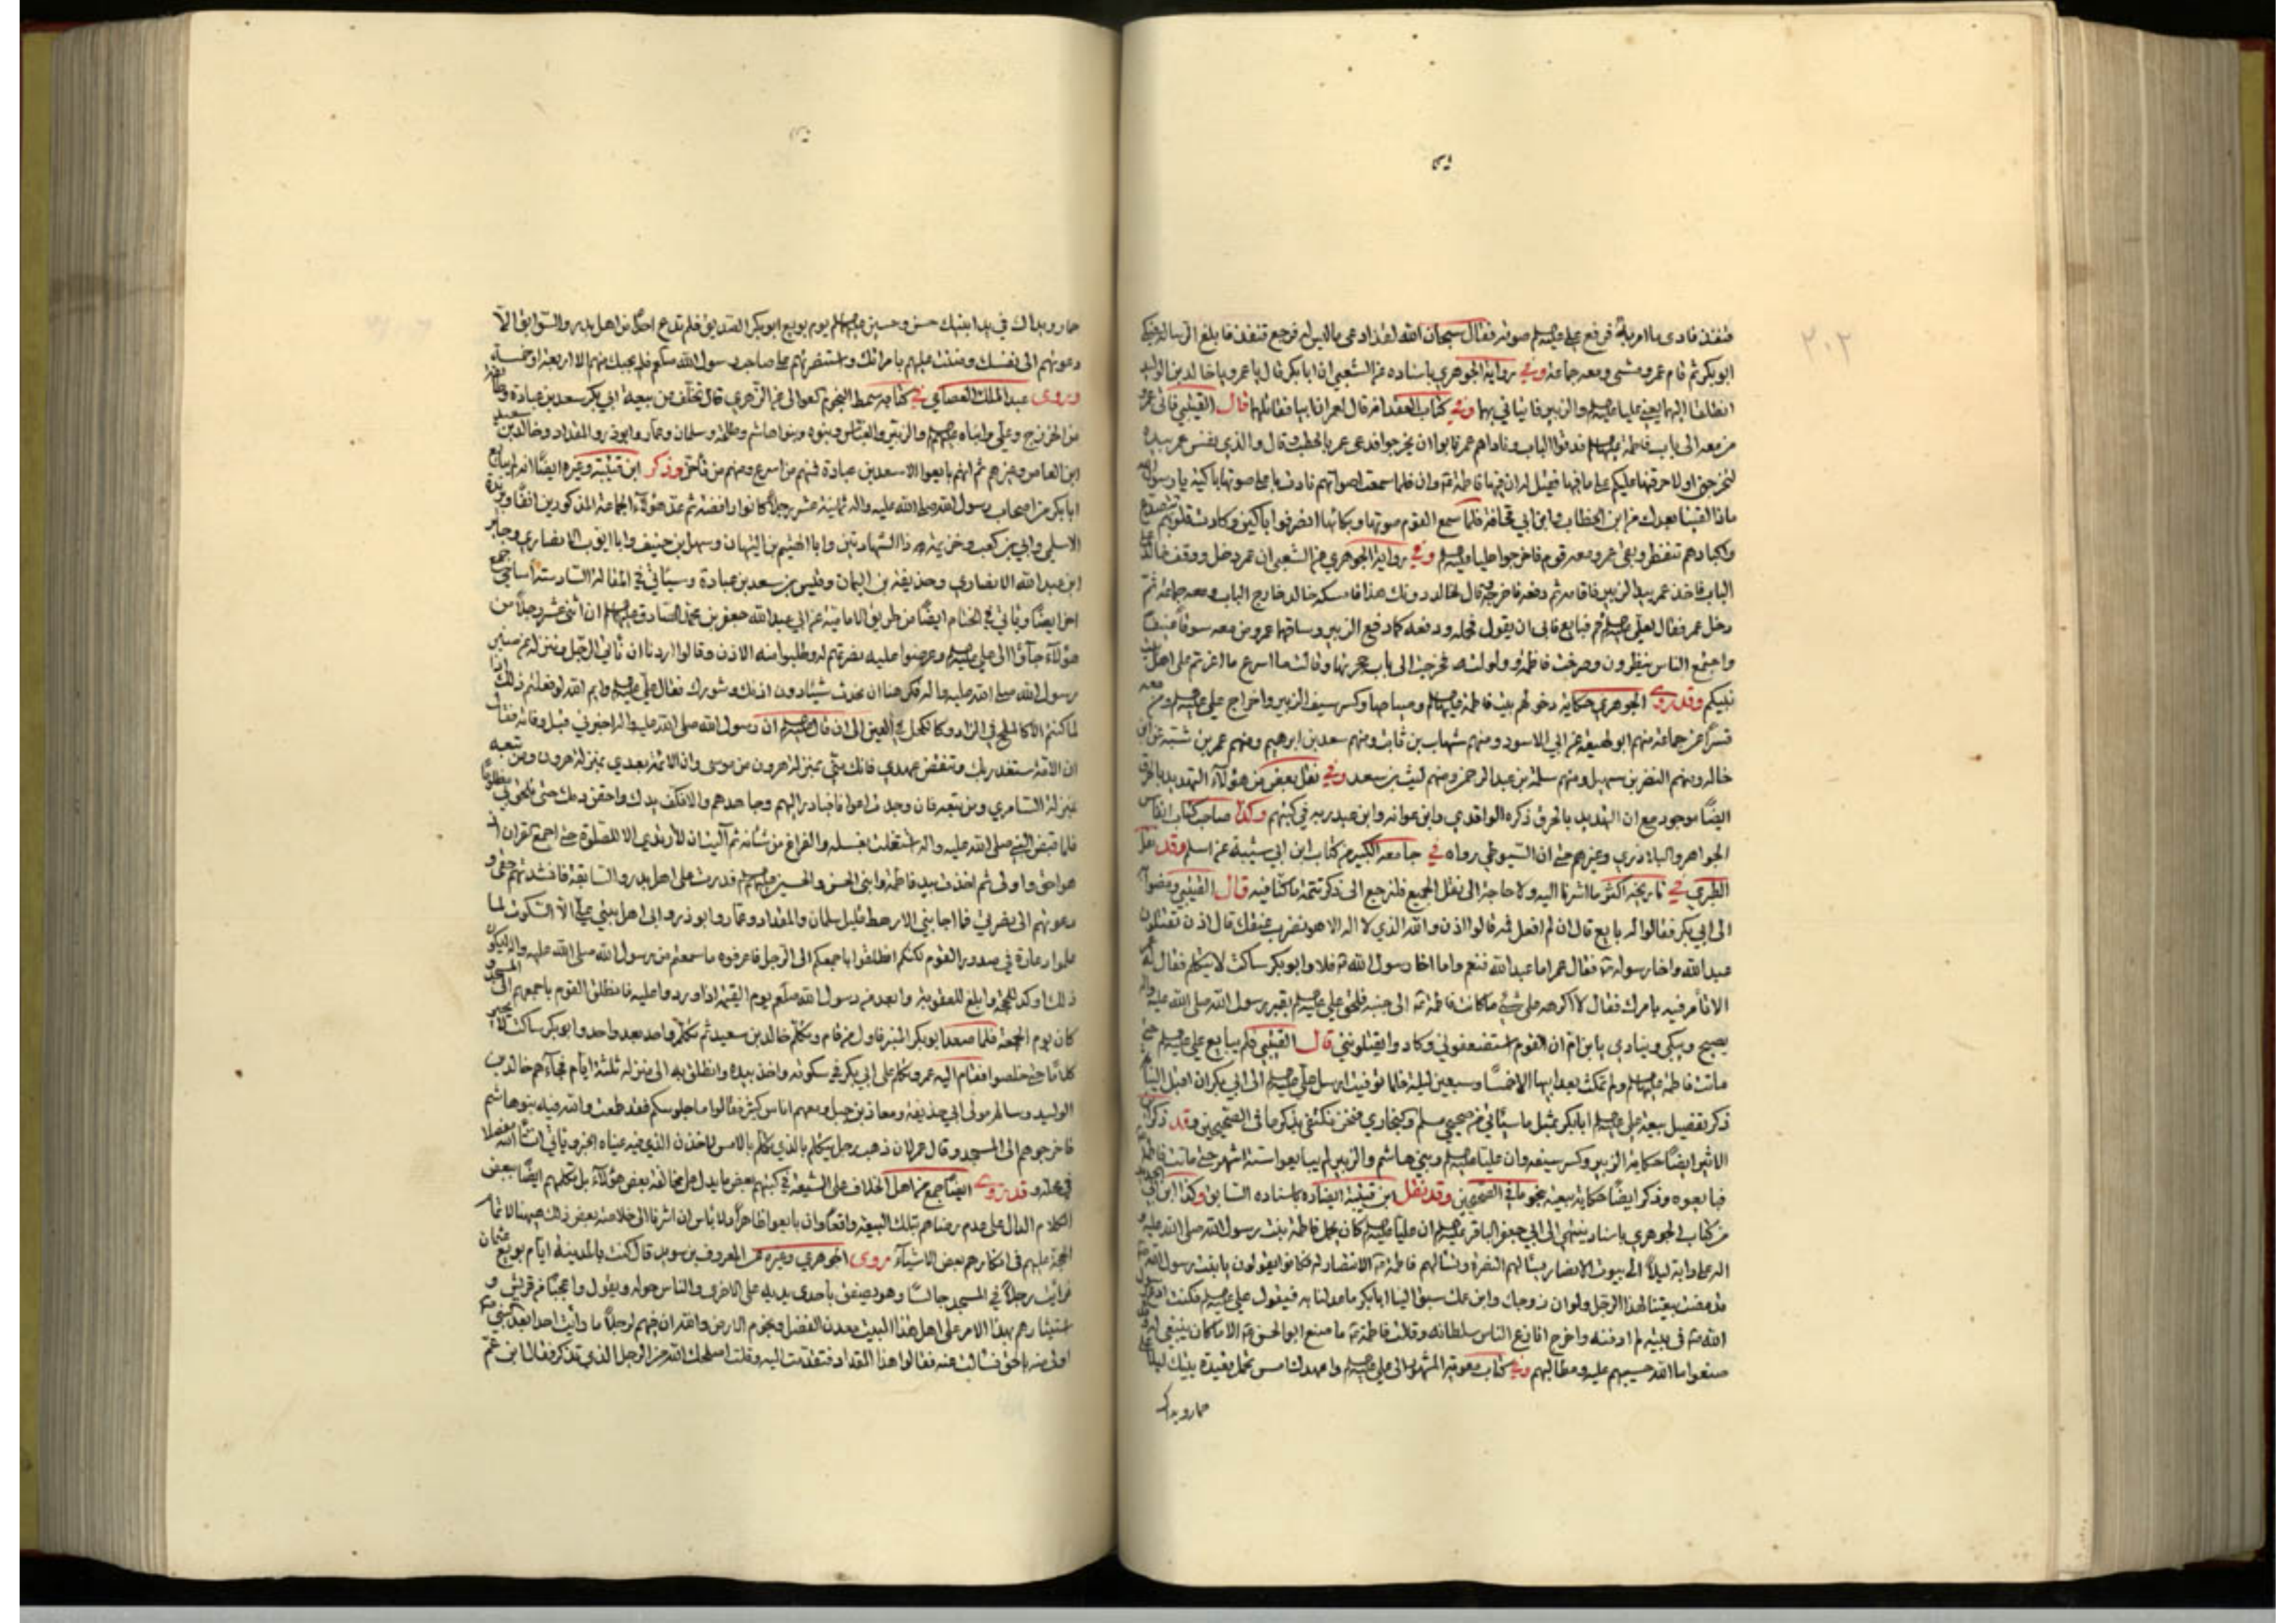 ٢٠٢
قنفذ فادى ما امر به فرفع علي عليه السلام صوته فقال سبحان الله لقد ادعى ما ليس له فرجع قنفذ فابلغ الرسالة فبكى
ابو بكر ثم قام عمرو مشى ومعه جماعة وفي رواية الجوهري باسناده عن الشعبي ان ابا بكر قال يا عمر ويا خالد بن الوليد
انطلقا اليهما يعني عليا عليه السلام والزبير فاتياني بهما وفي كتاب العقد انه قال لعمر ان ابيا فقاتلهما قال القتيبي فاتى عمر
من معه الى باب فاطمة عليها السلام فدقوا الباب وناداهم عمر فابوا ان يخرجوا فدعى عمر بالحطب وقال والذي نفس عمر بيده
لتخرجن او لاحرقنها عليكم على ما فيها فقيل له ان فيها فاطمة قال وان فلما سمعت اصواتهم نادت باعلى صوتها باكية يا رسول الله
ماذا لقينا بعدك من ابن الخطاب وابن ابي قحافة فلما سمع القوم صوتها وبكائها انصرفوا باكين وكادت قلوبهم تتصدع
واكبادهم تنفطر وبقي عمر ومعه قوم فاخرجوا عليا عليه السلام وفي رواية الجوهري عن الشعبي ان عمر دخل ووقف خالد على
الباب فاخذ عمر بيد الزبير فاقامه ثم دفعه فاخرجه وقال لخالد دونك هذا فامسكه خالد خارج الباب ومعه جماعة ثم
دخل عمر فقال لعلي عليه السلام قم فبايع فابى ان يقول فحمله ودفعه كما دفع الزبير وساقهما عمر ومن معه سوقا عنيفا
واجتمع الناس ينظرون وصرخت فاطمة وولولت فخرجت الى باب حجرتها وقالت ما اسرع ما اغرتم على اهل بيت
نبيكم وقد روى الجوهري حكاية دخولهم بيت فاطمة عليها السلام وصياحها وكسر سيف الزبير واخراج علي عليه السلام ومن معه
قسرا عن جماعة منهم ابو لهيعة عن ابي الاسود ومنهم شهاب بن ثابت ومنهم سعد بن ابرهيم ومنهم عمر بن شبة عن ابن
خاله ومنهم النضر بن سهيل ومنهم سلمة بن عبد الرحمن ومنهم ليث بن سعد وفي نقل بعض من هؤلاء التهديد بالحرق
ايضا موجود مع ان التهديد بالحرق ذكره الواقدي وابن عوانه وابن عبد ربه في كتبهم وكذا صاحب كتاب انفاس
الجواهر والبلاذري وغيرهم حتى ان السيوطي رواه في جامعه الكبير من كتاب ابن ابي شيبة عن اسلم وقد نقل
الطبري في تاريخه اكثر ما اشرنا اليه ولا حاجة الى نقل الجميع فلنرجع الى ذكر تتمة ما كنا فيه قال القتيبي ومضوا به
الى ابي بكر فقالوا له بايع قال ان لم افعل فمه قالوا اذن والله الذي لا اله الا هو نضرب عنقك قال اذن تقتلون
عبد الله واخا رسوله فقال عمر اما عبد الله فنعم واما اخا رسول الله فلا وابو بكر ساكت لا يتكلم فقال له
الا تأمر فيه بامرك فقال لا اكرهه على شيء ما كانت فاطمة الى جنبه فلحق علي عليه السلام بقبر رسول الله صلى الله عليه واله
يصيح ويبكي وينادي يا ابن ام ان القوم استضعفوني وكادوا يقتلونني قال القتيبي فلم يبايع علي عليه السلام حتى
ماتت فاطمة عليها السلام ولم تمكث بعد ابيها الا خمسا وسبعين ليلة فلما توفيت ارسل علي عليه السلام الى ابي بكر ان اقبل الينا
ذكر تفصيل بيعة علي عليه السلام ابا بكر بمثل ما سيأتي من صحيحي مسلم والبخاري فنحن نكتفي بذكر ما في الصحيحين وقد ذكر ابن
الاثير ايضا حكاية الزبير وكسر سيفه وان عليا عليه السلام وبني هاشم والزبير لم يبايعوا ستة اشهر حتى ماتت فاطمة
فبايعوه وذكر ايضا حكاية بيعته بنحو ما في الصحيحين وقد نقل ابن قتيبة ايضا باسناده السابق وكذا ابن ابي الحديد
من كتاب الجوهري باسناد ينتهي الى ابي جعفر الباقر عليه السلام ان عليا عليه السلام كان يحمل فاطمة بنت رسول الله صلى الله عليه و
اله على دابة ليلا الى بيوت الانصار يسألهم النصرة وتسألهم فاطمة الانتصار له فكانوا يقولون يا بنت رسول الله
قد مضت بيعتنا لهذا الرجل ولو ان زوجك وابن عمك سبق الينا ابا بكر ما عدلنا به فيقول علي عليه السلام أفكنت ادع رسول
الله في بيته لم ادفنه واخرج انازع الناس سلطانه وقالت فاطمة ما صنع ابو الحسن الا ما كان ينبغي له وقد
صنعوا ما الله حسيبهم عليه ومطالبهم وفي كتاب معوية المشهور الى علي عليه السلام واعهدك امس تحمل قعيدة بيتك ليلا على
حمار ويداك
حمار ويداك في يد ابنيك حسن وحسين عليهما السلام يوم بويع ابو بكر الصديق فلم تدع احدا من اهل بدر والسوابق الا
دعوتهم الى نفسك ومشيت عليهم بامرأتك واستنصرتهم على صاحب رسول الله صلعم فلم يجبك منهم الا اربعة او خمسة
وروى عبد الملك العصامي في كتابه سمط النجوم العوالي عن الزهري قال تخلف عن بيعة ابي بكر سعد بن عبادة وطائفة
من الخزرج وعلي وابناه عليهم السلام والزبير والعباس وبنوه وبنو هاشم وطلحة وسلمان وعمار وابوذر والمقداد وخالد بن سعيد
ابن العاص وغيرهم ثم انهم بايعوا الا سعد بن عبادة فمنهم من اسرع ومنهم من تأخر وذكر ابن قتيبة وغيره ايضا انه لم يبايع
ابا بكر من اصحاب رسول الله صلى الله عليه واله ثمانية عشر رجلا كانوا رافضة ثم عد هؤلاء الجماعة المذكورين انفا وبريدة
الاسلمي وابي بن كعب وخزيمة ذا الشهادتين وابا الهيثم بن التيهان وسهل بن حنيف وابا ايوب الانصاري وجابر
ابن عبد الله الانصاري وحذيفة بن اليمان وقيس بن سعد بن عبادة وسيأتي في المقالة السادسة اسامي جمع
اخر ايضا ويأتي في الختام ايضا من طريق الامامية عن ابي عبد الله جعفر بن محمد الصادق عليهما السلام ان اثنى عشر رجلا من
هؤلاء جاؤا الى علي عليه السلام وعرضوا عليه نصرتهم له وطلبوا منه الاذن وقالوا اردنا ان نأتي الرجل وننزله عن منبر
رسول الله صلى الله عليه واله فكرهنا ان نحدث شيئا دون اذنك وشورك فقال علي عليه السلام وايم الله لو فعلتم ذلك اذا
لما كنتم الا كالملح في الزاد وكالكحل في العين الى ان قال عليه السلام ان رسول الله صلى الله عليه واله اخبرني قبل وفاته فقال
ان الامة ستغدر بك وتنقض عهدي فانك مني بمنزلة هرون من موسى وان الامة بعدي بمنزلة هرون ومن تبعه
بمنزلة السامري ومن تبعه فان وجدت اعوانا فبادر اليهم وجاهدهم والا فكف يدك واحقن دمك حتى تلحق بي مظلوما
فلما قبض النبي صلى الله عليه واله اشتغلت بغسله والفراغ من شأنه ثم آليت ان لا ارتدي الا للصلوة حتى اجمع القران
هو احق واولى ثم اخذت بيد فاطمة وابني الحسن والحسين عليهم السلام فدرت على اهل بدر والسابقة فانشدتهم حقي و
دعوتهم الى نصرتي فما اجابني الا رهط قليل سلمان والمقداد وعمار وابوذر وابى اهل بيتي علي الا السكوت لما
علموا وغارة في صدور القوم لكنكم انطلقوا باجمعكم الى الرجل فاعرفوه ما سمعتم من رسول الله صلى الله عليه واله ليكون
ذلك اوكد للحجة وابلغ للعقوبة وابعد من رسول الله صلعم يوم القيمة اذا وردوا عليه فانطلق القوم باجمعهم الى المسجد و
كان يوم الجمعة فلما صعد ابو بكر المنبر فاول من قام وتكلم خالد بن سعيد ثم تكلم واحد بعد واحد وابو بكر ساكت لا يحير
كلاما حتى خلصوا فقام اليه عمر وتكلم على ابي بكر في سكوته واخذ بيده وانطلق به الى منزله ثلثة ايام فجاءهم خالد بن
الوليد وسالم مولى ابي حذيفة ومعاذ بن جبل ومعهم اناس كثير فقالوا ما جلوسكم فقد طمعت والله فيه بنو هاشم
فاخرجوهم الى المسجد وقال عمر لان ذهب رجل يتكلم بالذي تكلم بالامس لاخذن الذي فيه عيناه الخبر ويأتي انشأ الله مفصلا
في محله وقد روى ايضا جمع من اهل الخلاف على الشيعة في كتبهم بعض ما يدل على مخالفة بعض هؤلاء بل تكلمهم ايضا ببعض
الكلام الدال على عدم رضاهم بتلك البيعة واقعا وان بايعوا ظاهرا ولا بأس ان اشرنا الى خلاصة بعض ذلك هيهنا لاتمام
الحجة عليهم في انكارهم بعض الاشياء روى الجوهري وغيره عن المعروف بن سويد قال كنت بالمدينة ايام بويع عثمان
فرأيت رجلا في المسجد جالسا وهو يصفق باحدى يديه على الاخرى والناس حوله ويقول واعجبا من قريش و
استيثارهم بهذا الامر على اهل هذا البيت معدن الفضل ونجوم الارض والله ان فيهم لرجلا ما رأيت احدا بعد النبي
اولى منه بالحق فسألت عنه فقالوا هذا المقداد فتقدمت اليه وقلت اصلحك الله من الرجل الذي تذكر فقال ابن عم